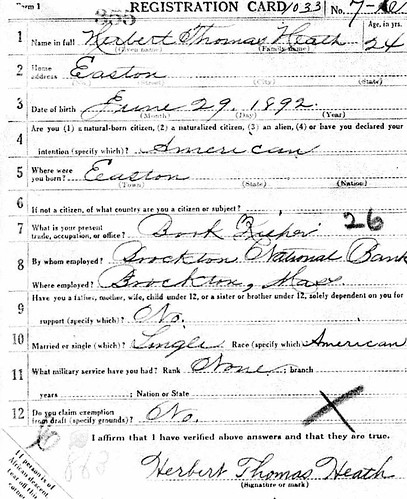 Form 1 REGISTRATION CARD 1033 No. 7
355
1 Name in full Herbert Thomas Heath Age, in yrs. 24
(Given name) (Family name)
2 Home address Easton
(No.) (Street) (City) (State)
3 Date of birth June 29, 1892.
(Month) (Day) (Year)
4 Are you (1) a natural-born citizen, (2) a naturalized citizen, (3) an alien, (4) or have you declared your
intention (specify which)? American
5 Where were you born? Easton
(Town) (State) (Nation)
6 If not a citizen, of what country are you a citizen or subject?
7 What is your present trade, occupation, or office? Book Kieper 26
8 By whom employed? Brockton National Bank
Where employed? Brockton, Mass
9 Have you a father, mother, wife, child under 12, or a sister or brother under 12, solely dependent on you for
support (specify which)? No.
10 Married or single (which)? Single Race (specify which) American
11 What military service have you had? Rank None; branch
years ; Nation or State
12 Do you claim exemption from draft (specify grounds)? No.
I affirm that I have verified above answers and that they are true.
If person is of African descent, tear off this corner
Herbert Thomas Heath
(Signature or mark)